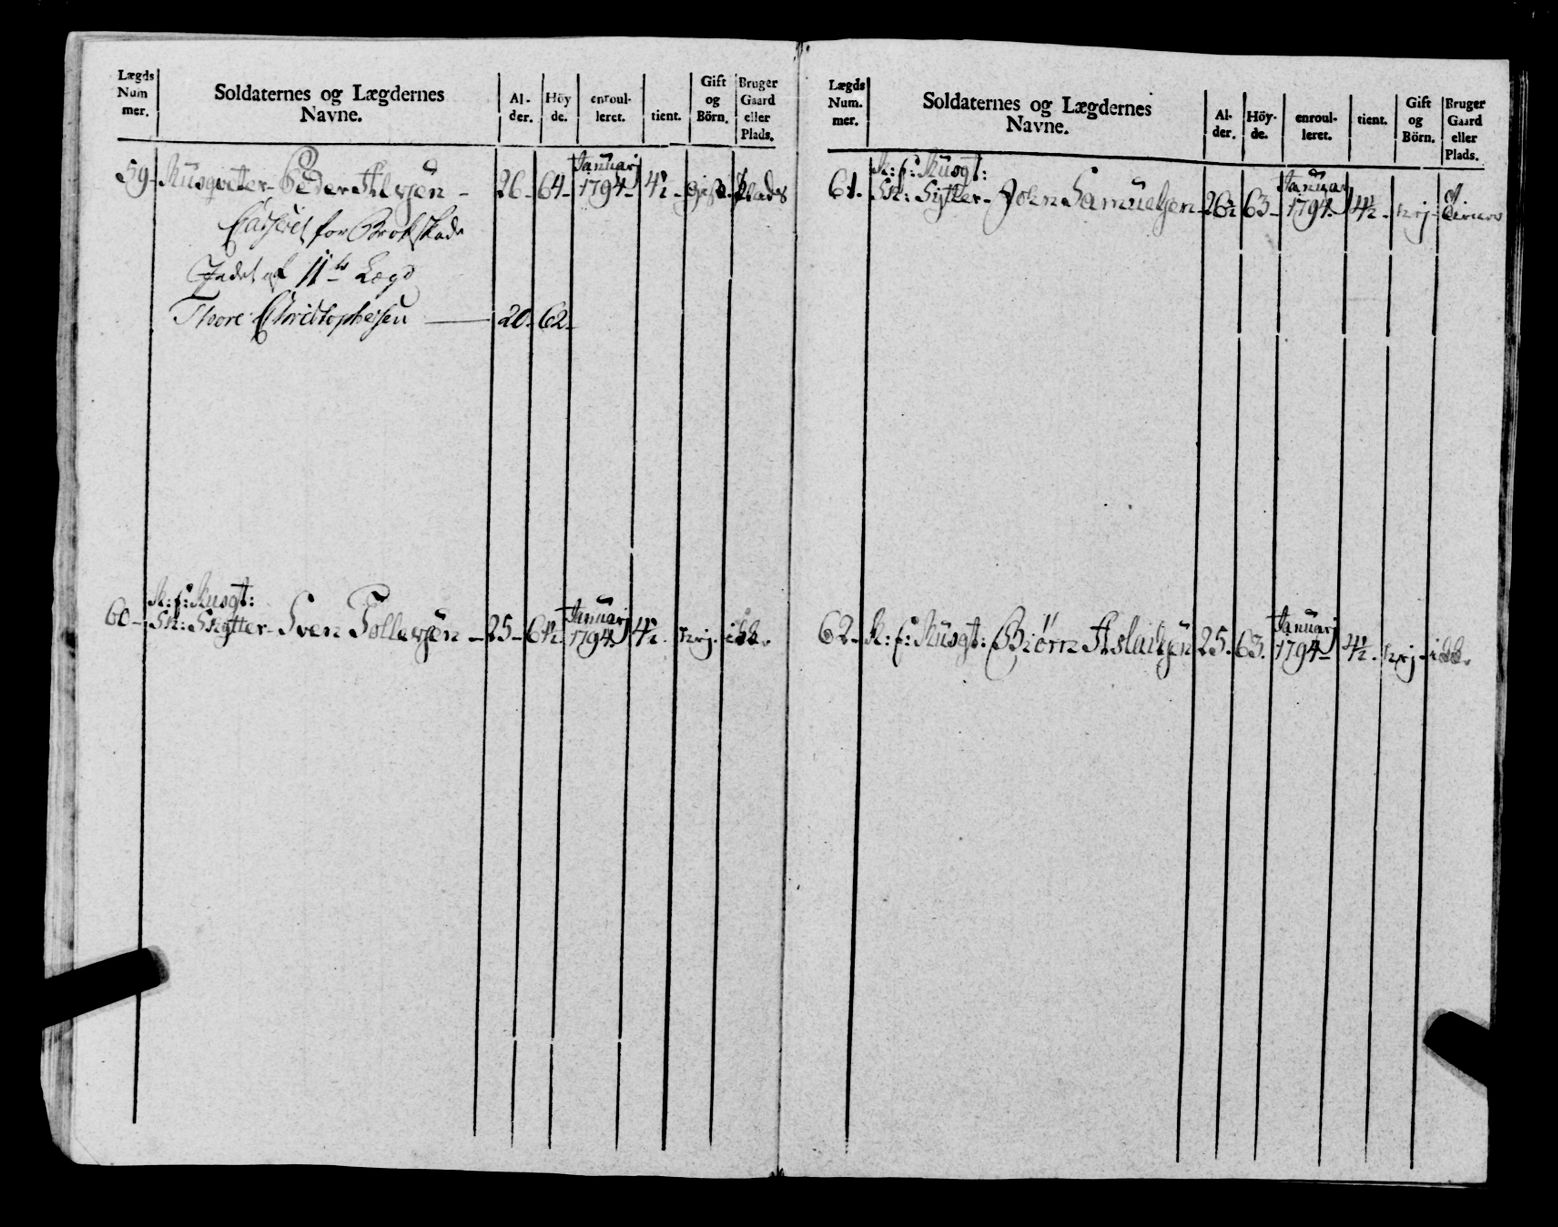 Lægds Num mer.
Soldaternes og Lægdernes Navne.
Al- der.
Höy de.
enroul- leret.
tient.
Gift og Börn.
Bruger Gaard eller Plads.
59- Musqveter- Peder Alvsen - 26- 64- Januarj 1794- 4½- Gift- Plads
Casseret for Brokskade
Jndet af 11te Lægd
Thore Christophersen 20- 62-
60- N: f: Musgt:
Sk: Skytter- Sven Tollevsen - 25- 64½- Januarj 1794- 4½- nej- ikke
Lægds Num. mer.
Soldaternes og Lægdernes Navne.
Al- der.
Höy- de.
enroul- leret.
tient.
Gift og Börn.
Bruger Gaard eller Plads.
61- N: f: Musgt:
Sk: Sytter- John Samuelsen- 26½ 63- Januarj 1794- 4½- nej-
62- N: f: Musgt: Biörn Aslachsen 25- 63- Januarj 1794- 4½- nej- ikke